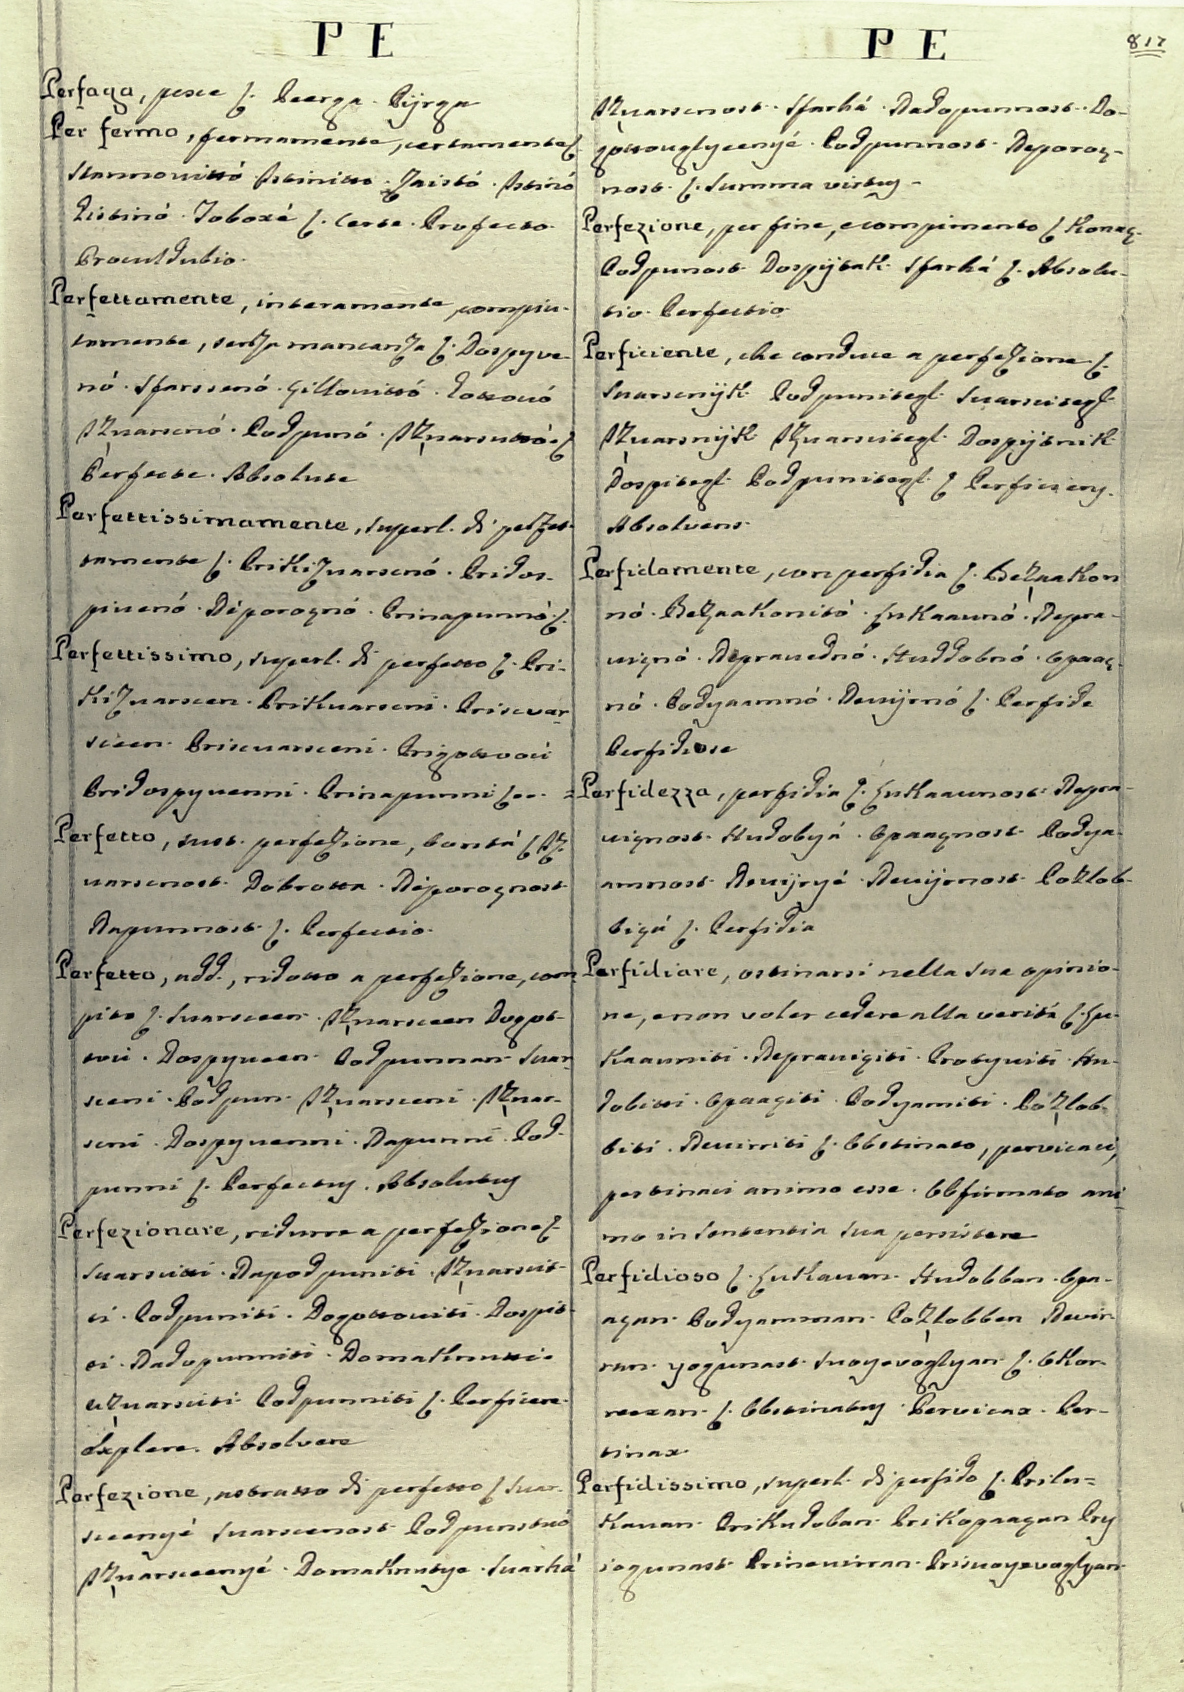 PE
Perfaga, pesce ſ. Peerga. Pÿrga
Per fermo, fermamente, certamente ſ.
Stannovittó. Istinitto. Zaistó. Istinó
Zistinó. Toboxé ſ. Certe. Profecto.
Proculdubio.
Perfettamente, interamente, compiu-
tamente, senza mancanza ſ. Dospyve-
nó. Sfarscenó. Gillovittó. Gotovó
Izvarscnó. Podpunó. Izvarsuttó. ſ
Perfecte. Absolute
Perfettissimamente, superl. di perfet-
tamente ſ. Prikizvarscnó. Pridos-
pivenó. DipoROgnó. Prinapunnó. ſ.
Perfettissimo, superl. di perfetto ſ. Pri-
kizvarscen. Prikvarscni. Priscvar-
sceen. Priscvarsceni. Prigotovovi
Pridospyvenni. Prinapunni ſ..
Perfetto, sust. perfezione, bontá ſ. Iz-
varscnost. Dobrotta. Diporoznost
Napunnost ſ. Perfectio.
Perfetto, add., ridotto a perfezione, com-
pito ſ. Svarsceen. Izvarsceen Dogot-
tovi. Dospyveen. Podpunnan. Svar-
sceni. Podpun. Izvarsceni. Izvar-
scni. Dospyvenni. Napunni. Pod-
punni ſ. Perfectus. Absolutus
Perfezionare, ridurre a perfezione ſ.
Svarscitti. Napodpuniti. Izvarscit-
ti. Podpuniti. Dogottoviti. Dospit-
ti. Nadopunniti. Domaknutti.
Uzvarsciti. Podpunniti ſ. Perficere.
Explere. Absolvere
Perfezione, astratto di perfetto ſ. Svar-
sceenyé. Svarscenost. Podpunstvó
Izvarsceenyé. Domaknutye. Svarhá
PE
817
Izvarscnost. Sfarhá. Nadopunnost. Do-
gottouglyeenyé. Podpunnost. Neporoz-
nost. ſ. Summa virtus.
Perfezione, per fine, e compimento ſ. Konaz.
Podpunost. Dospÿtak. Sfarhá ſ. Absolu-
tio. Perfectio
Perficiente, che conduce a perfezione ſ.
Svarscnÿk. Podpunitegl. Svarscitegl
Izvarsnÿk. Izvarscitegl. Dospÿtnik
Dospitegl. Podpunitegl ſ. Perficiens.
Absolvens.
Perfidamente, con perfidia ſ. Bezaakon-
nó. Bezaakonitó. Lukaavnó. Nepra-
viznó. Nepravednó. Huddobnó. Opaaz-
nó. Podyaamnó. Nevijrnó ſ. Perfide
Perfidiose
Perfidezza, perfidia ſ. Lukaavnost. Nepra-
viznost. Hudobyá. Opaaznost. Podya-
amnost. Nevijryé. Nevijrnost. Pozlob-
bizá ſ. Perfidia
Perfidiare, ostinarsi nella sua opinio-
ne, e non voler cedere alla veritá ſ. Lu-
kaavniti. Nepraviziti. Protyviti. Hu-
dobitti. Opaaziti. Podyamiti. Pozlob-
biti. Nevirriti ſ. Obstinato, pervicaci,
pertinaci animo esse. Obfirmato ani-
mo in sententia sua persistere
Perfidioso ſ. Lukavan. Hudobban. Opa-
azan. Podyamman. Pozlobben Nevir-
ran. yogunast. Svoyevoglyan ſ. Okor-
neexan. ſ. Obstinatus. Pervicax. Per-
tinax
Perfidissimo, superl. di perfido ſ. Prilu-
kavan. Prikudoban. Prikopaazan Pry
jogunast. Prinevirran. Prisvoyevoglyan